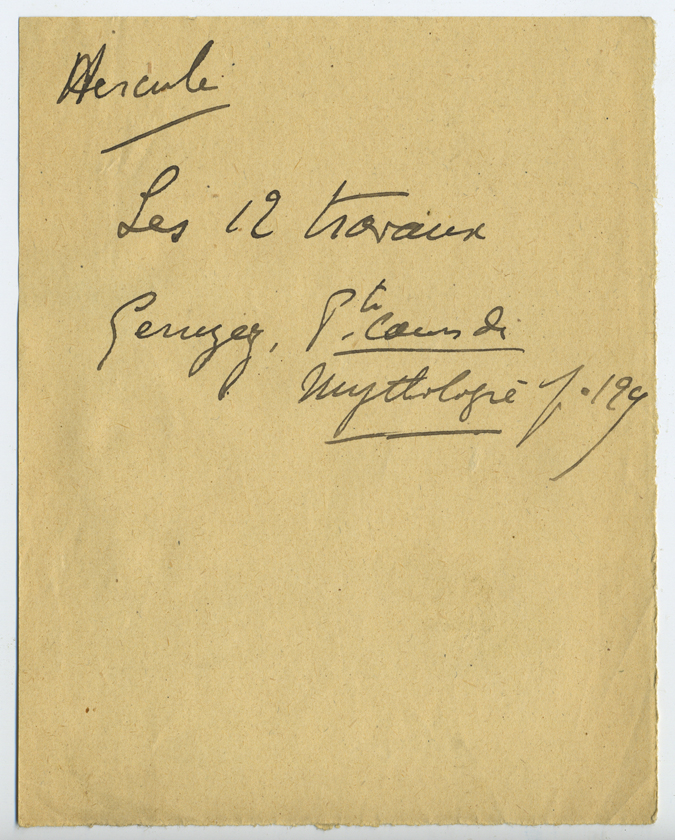 Hercule
Les 12 travaux
Geruzez, Pt Cours de
Mythologie p. 129